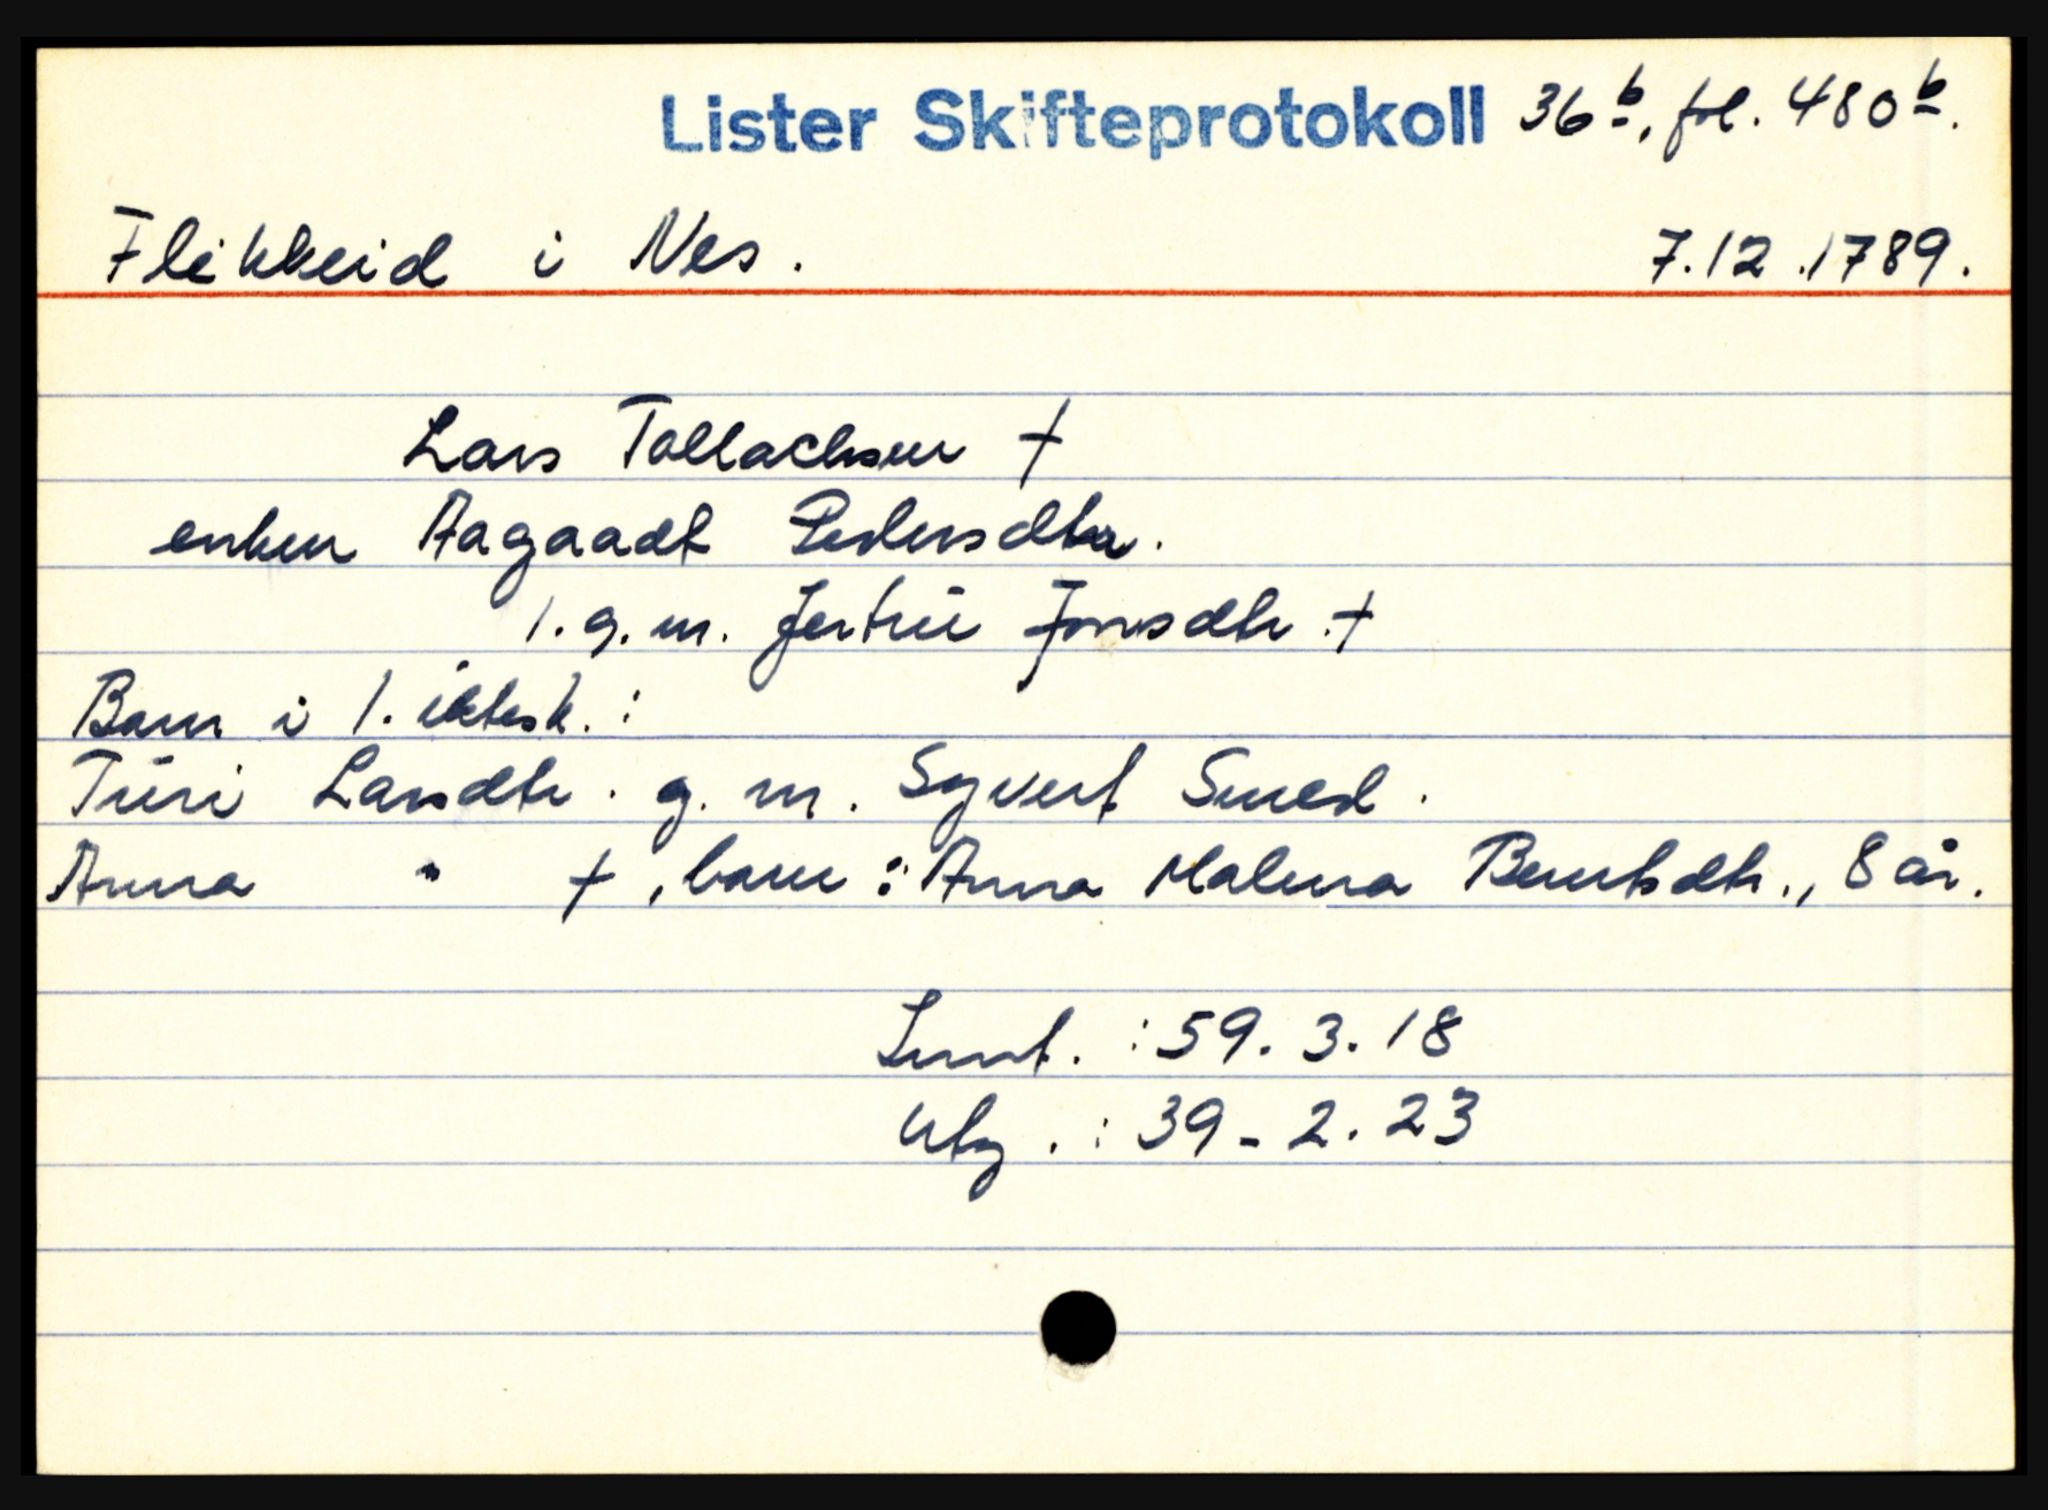 Lister Skifteprotokoll 36b, fol. 480b.
Flikkeid i Nes. 7.12.1789.
Lars Tollachsen †
enken Aagaadt Pedersdtr.
1. g. m. Jertrü Jonsdtr. †
Barn i 1. ektesk. :
Türi Larsdtr. g. m. Syvert Smed.
Anna " †, barn : Anna Malena Berntsdtr., 8 år.
: 59. 3. 18
: 39 - 2. 23